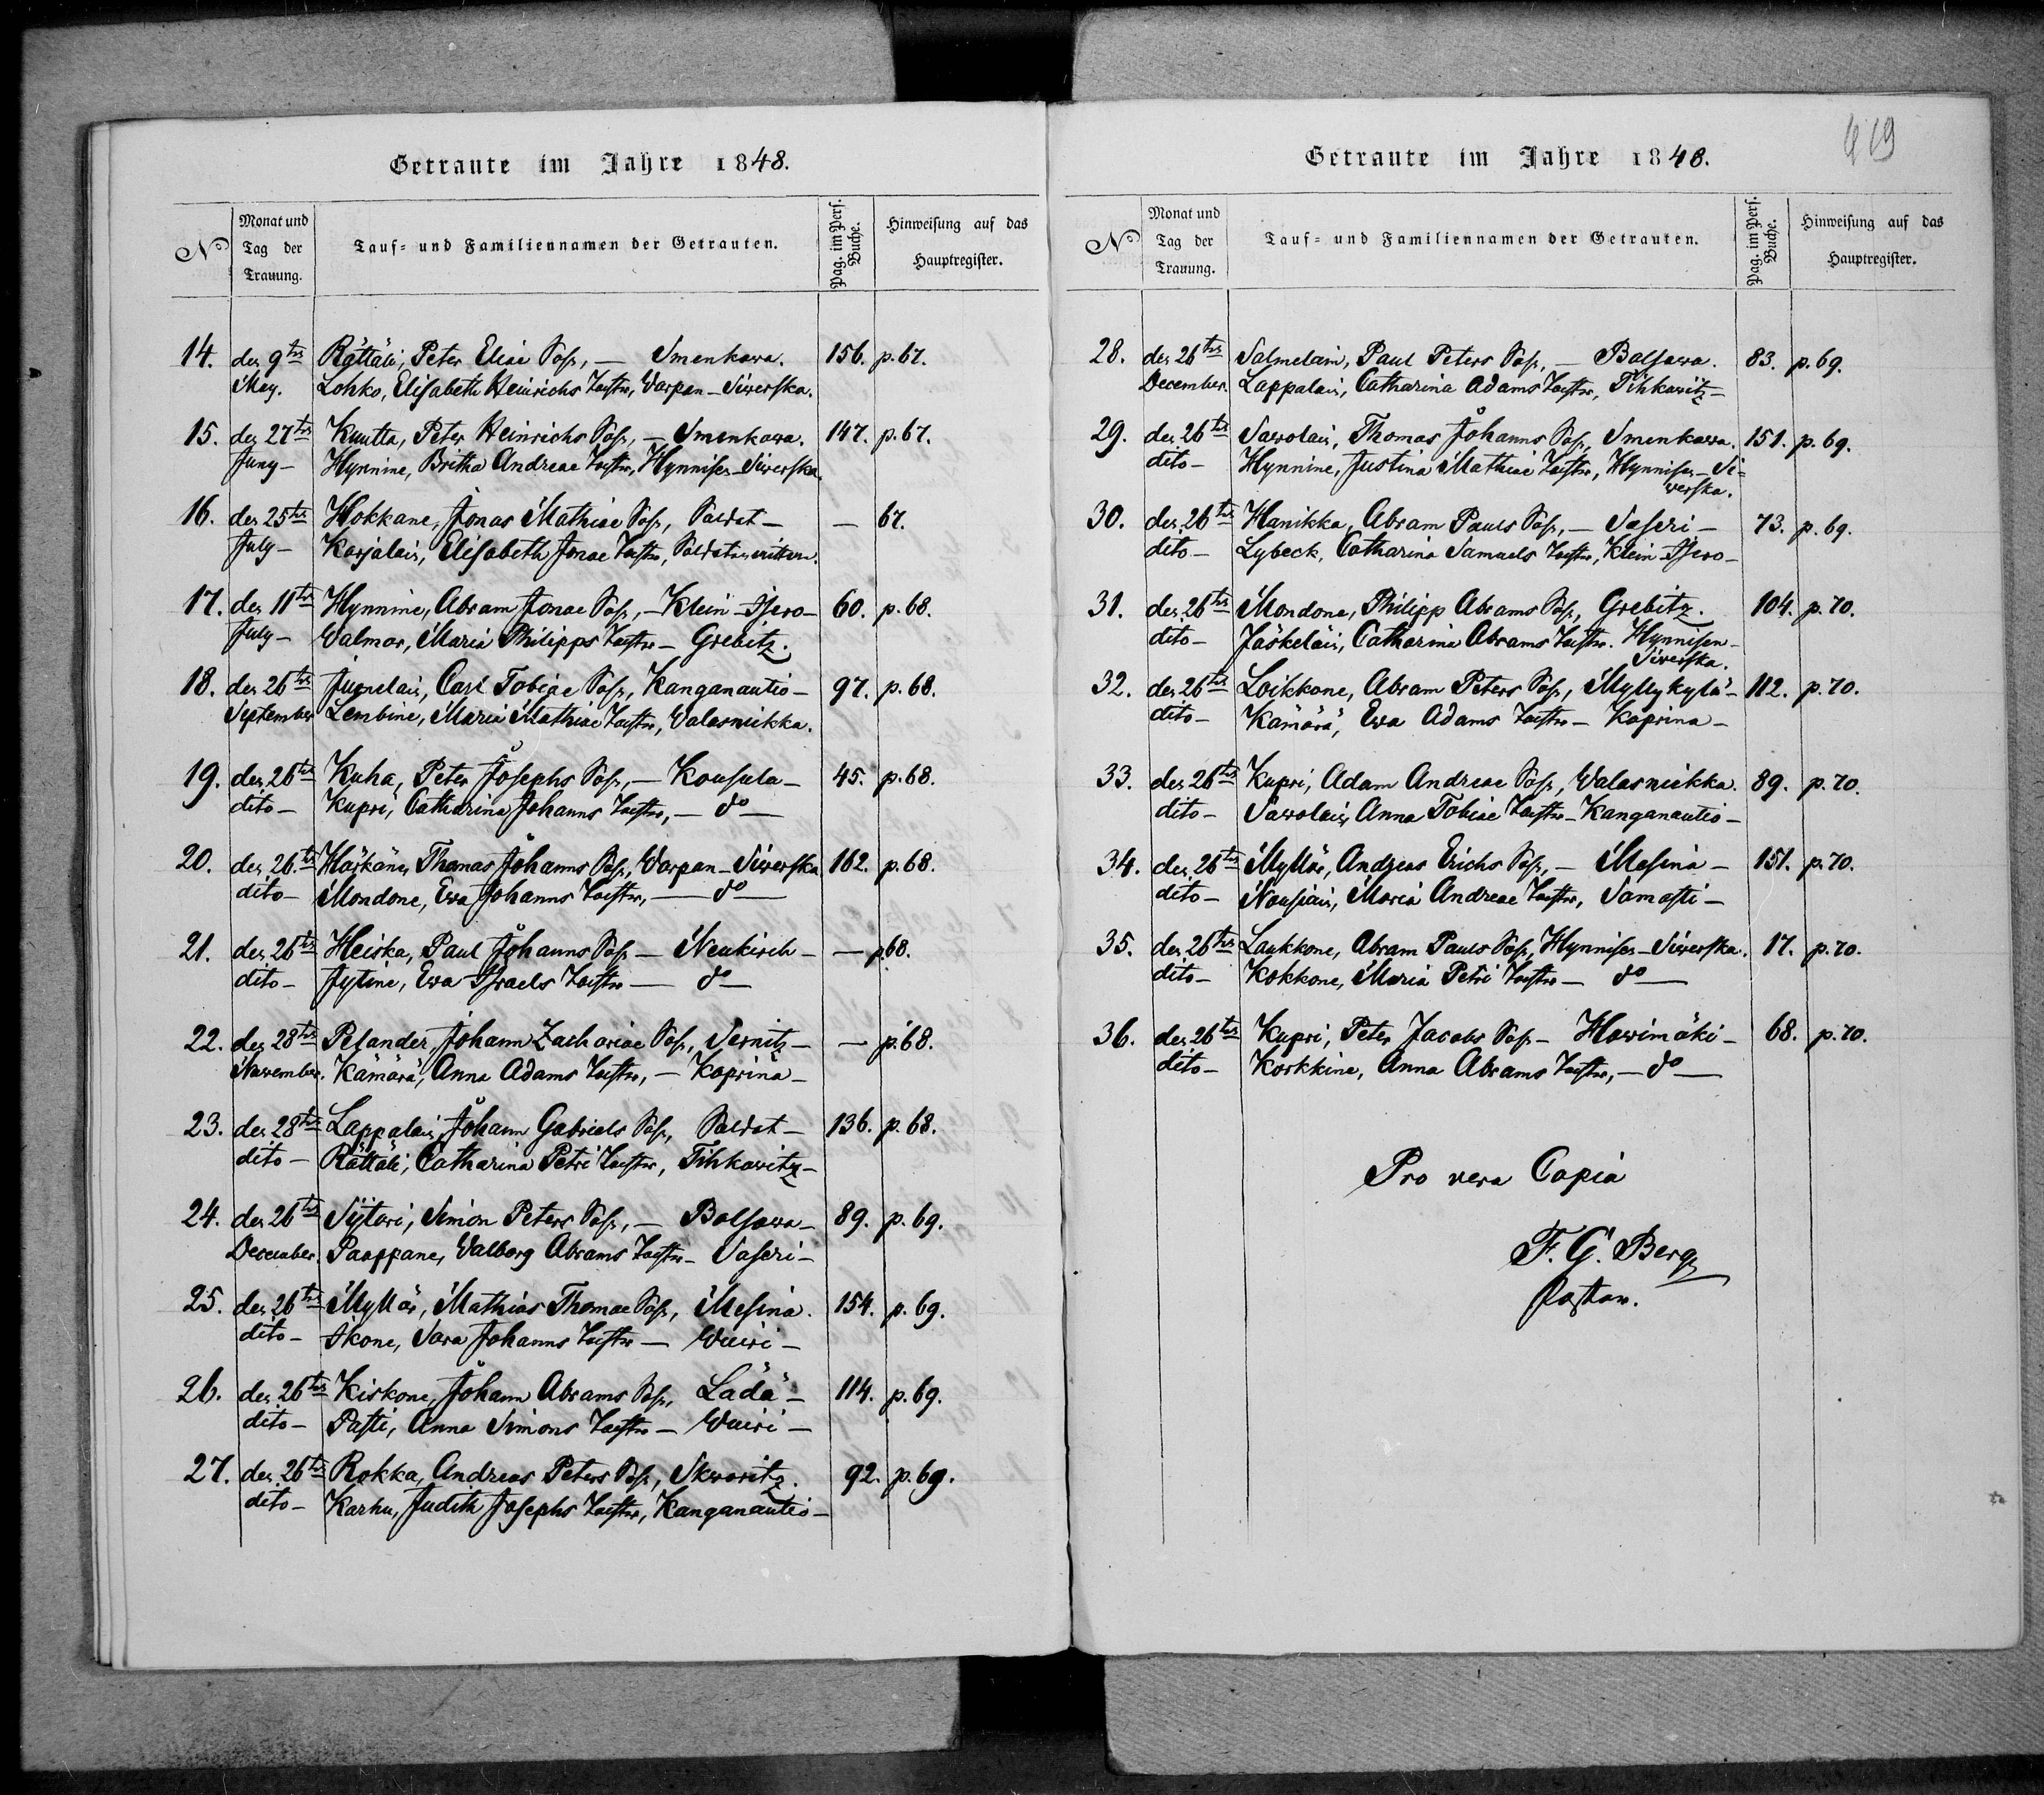 Getraute im Jahre 1848.
No
Monat und Tag der Trauung.
Tauf= und Familiennamen der Getrauten.
Pag. im Pers. Buche.
Hinweisung auf das Hauptregister.
14. den 9ten Rättäli, Peter Eliae Sohn, — Smenkowa. 156. p. 67.
May. Lohko, Elisabeth Heinrichs Tochter, Warpan-Siwerska.
15. den 27ten Kuutta, Peter Heinrichs Sohn, — Smenkowa. 147. p. 67.
Juny — Hynnine, Britha Andreae Tochter, Hynnisen-Siwerska.
16. den 25ten Hokkane, Jonas Mathiae Sohn, Soldat — — 67.
July — Karjalain, Elisabeth Jonae Tochter, Soldatenwittwe.
17. den 11ten Hynnine, Abram Jonae Sohn, — Klein-Isero — 60. p. 68.
July — Walmar, Maria Philipps Tochter — Grebitz.
18. den 26ten Juenelain, Carl Tobiae Sohn, Kanganautio — 97. p. 68.
September Lembine, Maria Mathiae Tochter, Walasnickka.
19. den 26ten Kuha, Peter Josephs Sohn, — Kousula — 45. p. 68.
dito — Kupri, Catharina Johanns Tochter, — do —
20. den 26ten Härkäne, Thomas Johanns Sohn, Warpan-Siwerska 162. p. 68.
dito — Mondone, Ewa Johanns Tochter, — do —
21. den 26ten Heiska, Paul Johanns Sohn — Neukirch — — p. 68.
dito — Jytine, Ewa Israels Tochter — do —
22. den 28ten Pelander, Johann Zachariae Sohn, Sernitz — — p. 68.
November. Kämärä, Anna Adams Tochter, — Koprina —
23. den 28ten Lappalain, Johann Gabriels Sohn, Soldat — 136. p. 68.
dito — Rättäli, Catharina Petri Tochter, Tihkowitz —
24. den 26ten Sytari, Simon Peters Sohn, — Bolsowa — 89. p. 69.
December. Paappane, Walborg Abrams Tochter — Saseri —
25. den 26ten Myllär, Mathias Thomae Sohn, Mesina. 154. p. 69.
dito — Ikone, Sara Johanns Tochter — Wuiri —
26. den 26ten Kiskone, Johann Abrams Sohn, Ladä — 114. p. 69.
dito — Pasti, Anna Simons Tochter — Wuiri —
27. den 26ten Rokka, Andreas Peters Sohn, Skworitz. 92. p. 69.
dito — Karhu, Judith Josephs Tochter, Kanganautio —
419
Getraute im Jahre 1848.
No
Monat und Tag der Trauung.
Tauf= und Familiennamen der Getrauten.
Pag. im Pers. Buche.
Hinweisung auf das Hauptregister.
28. den 26ten Salmelain, Paul Peters Sohn, — Bolsowa. 83. p. 69.
December. Lappalain, Catharina Adams Tochter, Tihkowitz —
29. den 26ten Sawolain, Thomas Johanns Sohn, Smenkowa. 151. p. 69.
dito — Hynnine, Justina Mathiae Tochter, Hynnisen-Si=
werska.
30. den 26ten Hanikka, Abram Pauls Sohn, — Saseri — 73. p. 69.
dito — Lybeck, Catharina Samuels Tochter, Klein-Isero —
31. den 26ten Mondone, Philipp Abrams Sohn, Grebitz. 104. p. 70.
dito — Jäskeläin, Catharina Abrams Tochter. Hynnisen-
Siwerska.
32. den 26ten Loikkone, Abram Peters Sohn, Myllykylä — 112. p. 70.
dito — Kämärä, Ewa Adams Tochter — Koprina —
33. den 26ten Kupri, Adam Andreae Sohn, Walasnickka. 89. p. 70.
dito — Sawolain, Anna Tobiae Tochter — Kanganautio —
34. den 26ten Myllär, Andreas Erichs Sohn, — Mesina — 151. p. 70.
dito — Nousiain, Maria Andreae Tochter, Samasti —
35. den 26ten Laukkone, Abram Pauls Sohn, Hynnisen-Siwerska. 17. p. 70.
dito — Kokkone, Maria Petri Tochter — do —
36. den 26ten Kupri, Peter Jacobs Sohn — Howimäki — 68. p. 70.
dito — Korkkine, Anna Abrams Tochter, — do —
Pro vera Copia
F. G. Berg
Pastor.